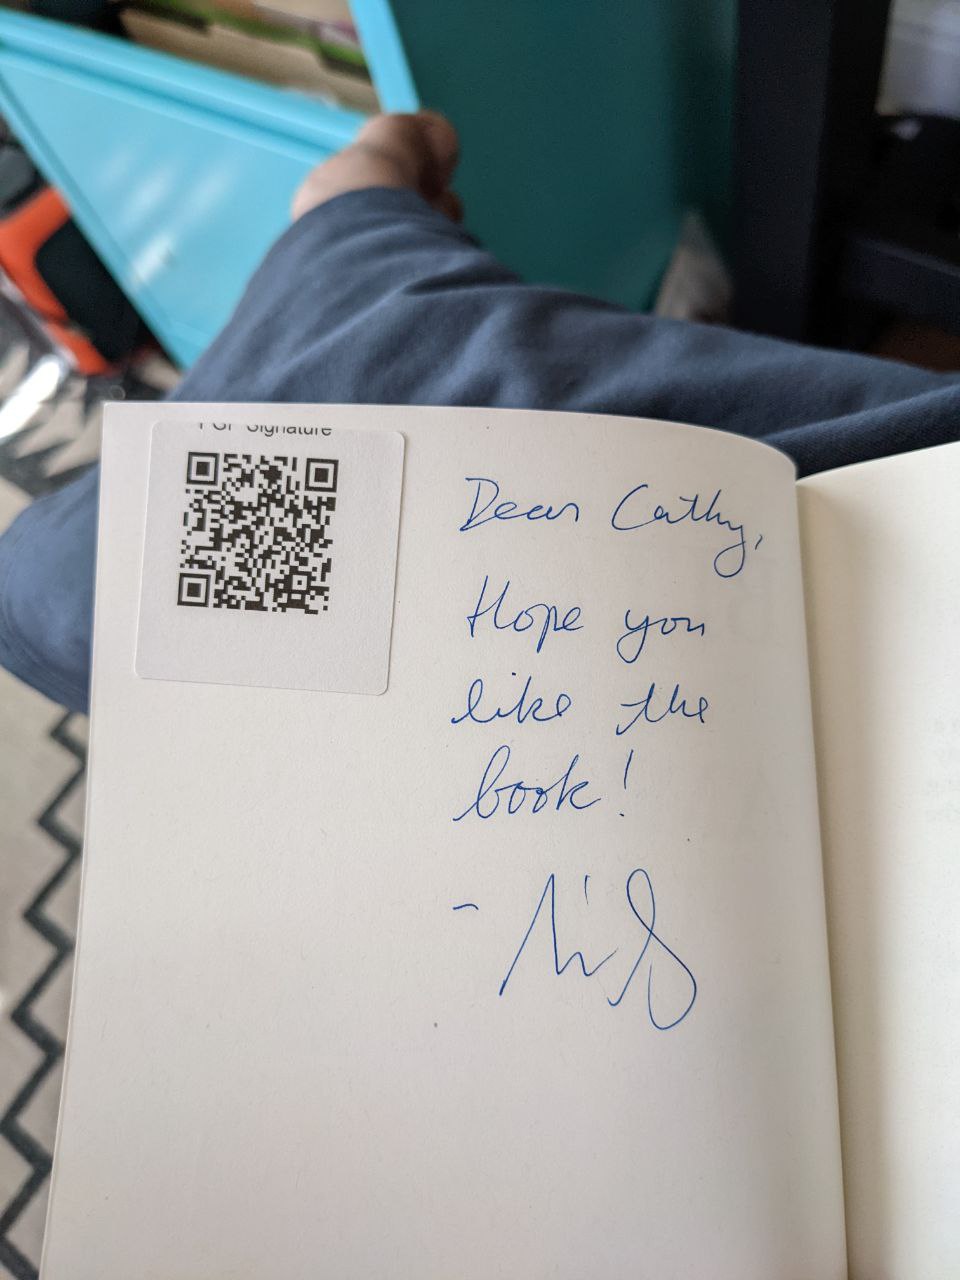 PGP Signature
Dear Cathy,
Hope you
like the
book!
-